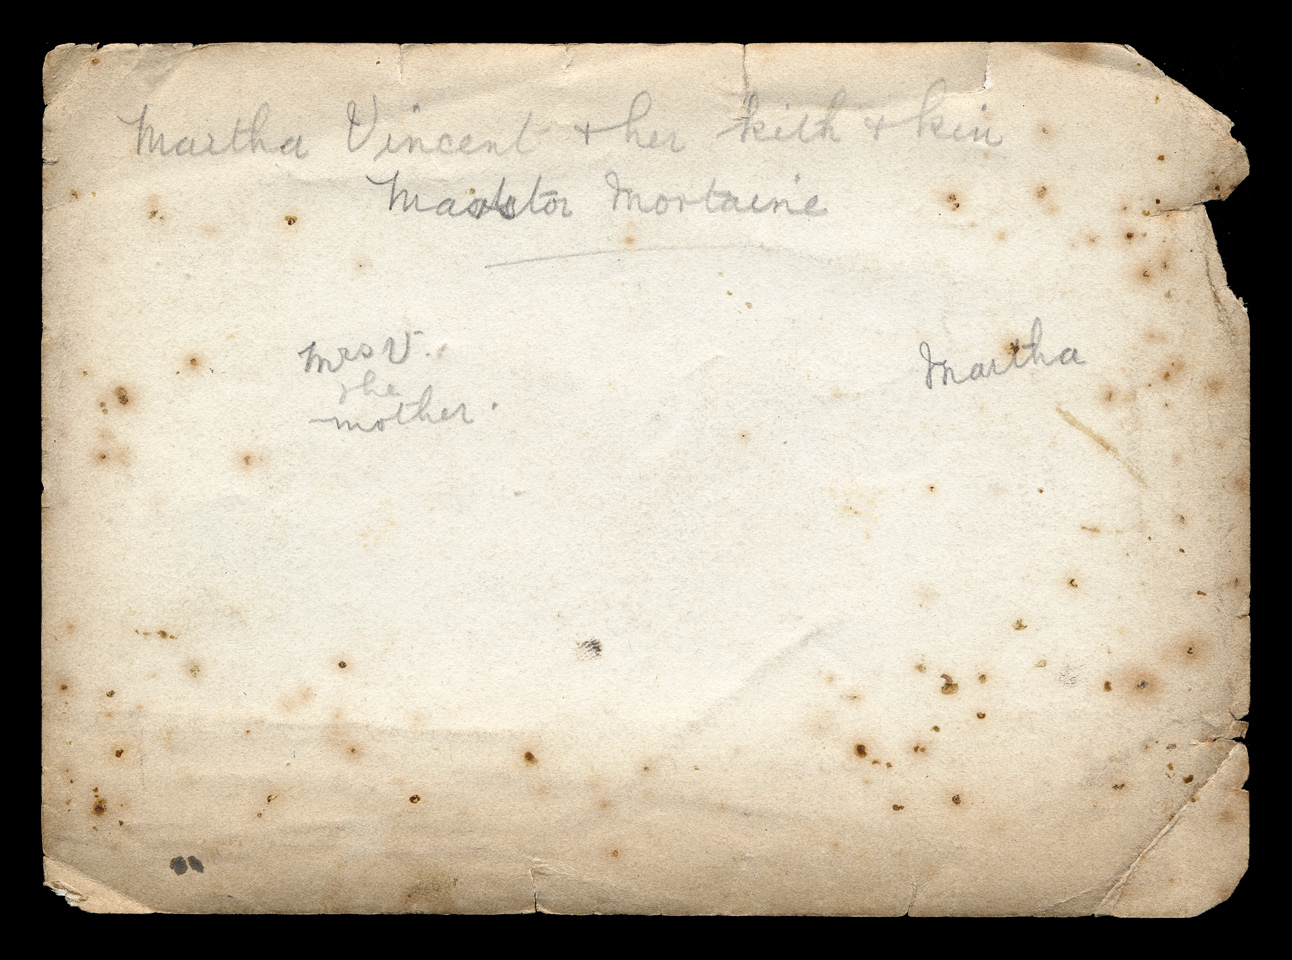 Martha Vincent & her kith & kin
Mortaine
Mrs V.
the
mother.
Martha